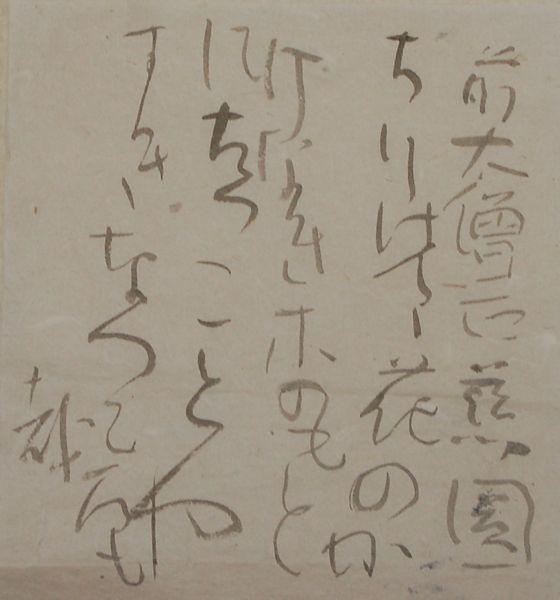 前大僧正慈圓
ちりはてゝ花のか
けなき木のもと
にたつことや
すきなつころも
哉